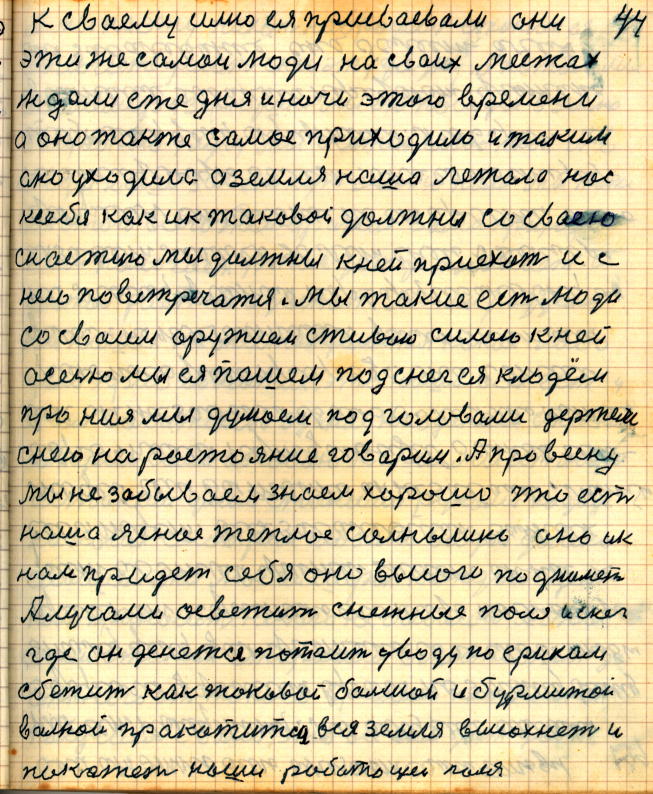 к сваему илно ся присваевали они 44
эти же самои люди на своих местах
ждали сте дня и ночи этого времени
а оно також самое приходило и таким
оно уходила а земля наша лежала нас
ксебя как ик таковой должны со сваею
снастию мы должны кней приехат и с
нею повстречатя. мы такие ест люди
со сваим оружием сживою силою кней
осеню мы ся пашем под снег ся кладём
про ния мы думаем под головами держем
снею на растояние говарим. А про весну
мы не забываем знаем хорошо что ест
наша ясное теплое солнышко оно ик
нам придет себя оно высого подниме
А лучами осветит снежные поля и снег
где он денется потаит уводу по ерикам
сбежит как токовой балшой и бурлитой
валной пракотится вся земля высохнет и
покажет наши работощеи поля